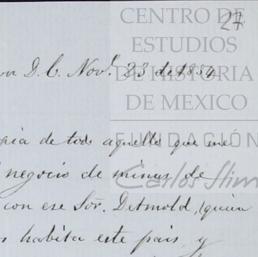 27
CENTRO DE
ESTUDIOS
DE HISTORIA
DE MEXICO
FUNDACIÓN
Carlos Slim
D. C. Novʳ. 23 de 1854
de todo aquello que me
negocio de minas de
con ese Sor. Detmold, quien
habita este pais, y